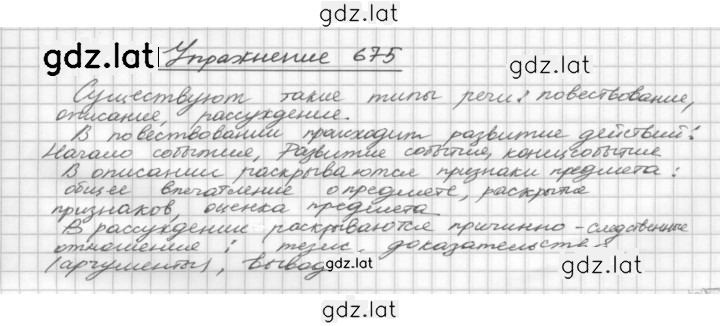 gdz.lat
gdz.lat Упражнение 675 gdz.lat
Существуют такие типы речи: повествование,
описание, рассуждение.
В повествовании происходит развитие действий:
Начало события, Развитие события, конец события
В описании раскрываются признаки предмета:
общее впечатление о предмете, раскрытие
признаков, оценка предмета
В рассуждении раскрываются причинно-следственные
отношения: тезис, доказательства
(аргументы), вывод gdz.lat gdz.lat
gdz.lat